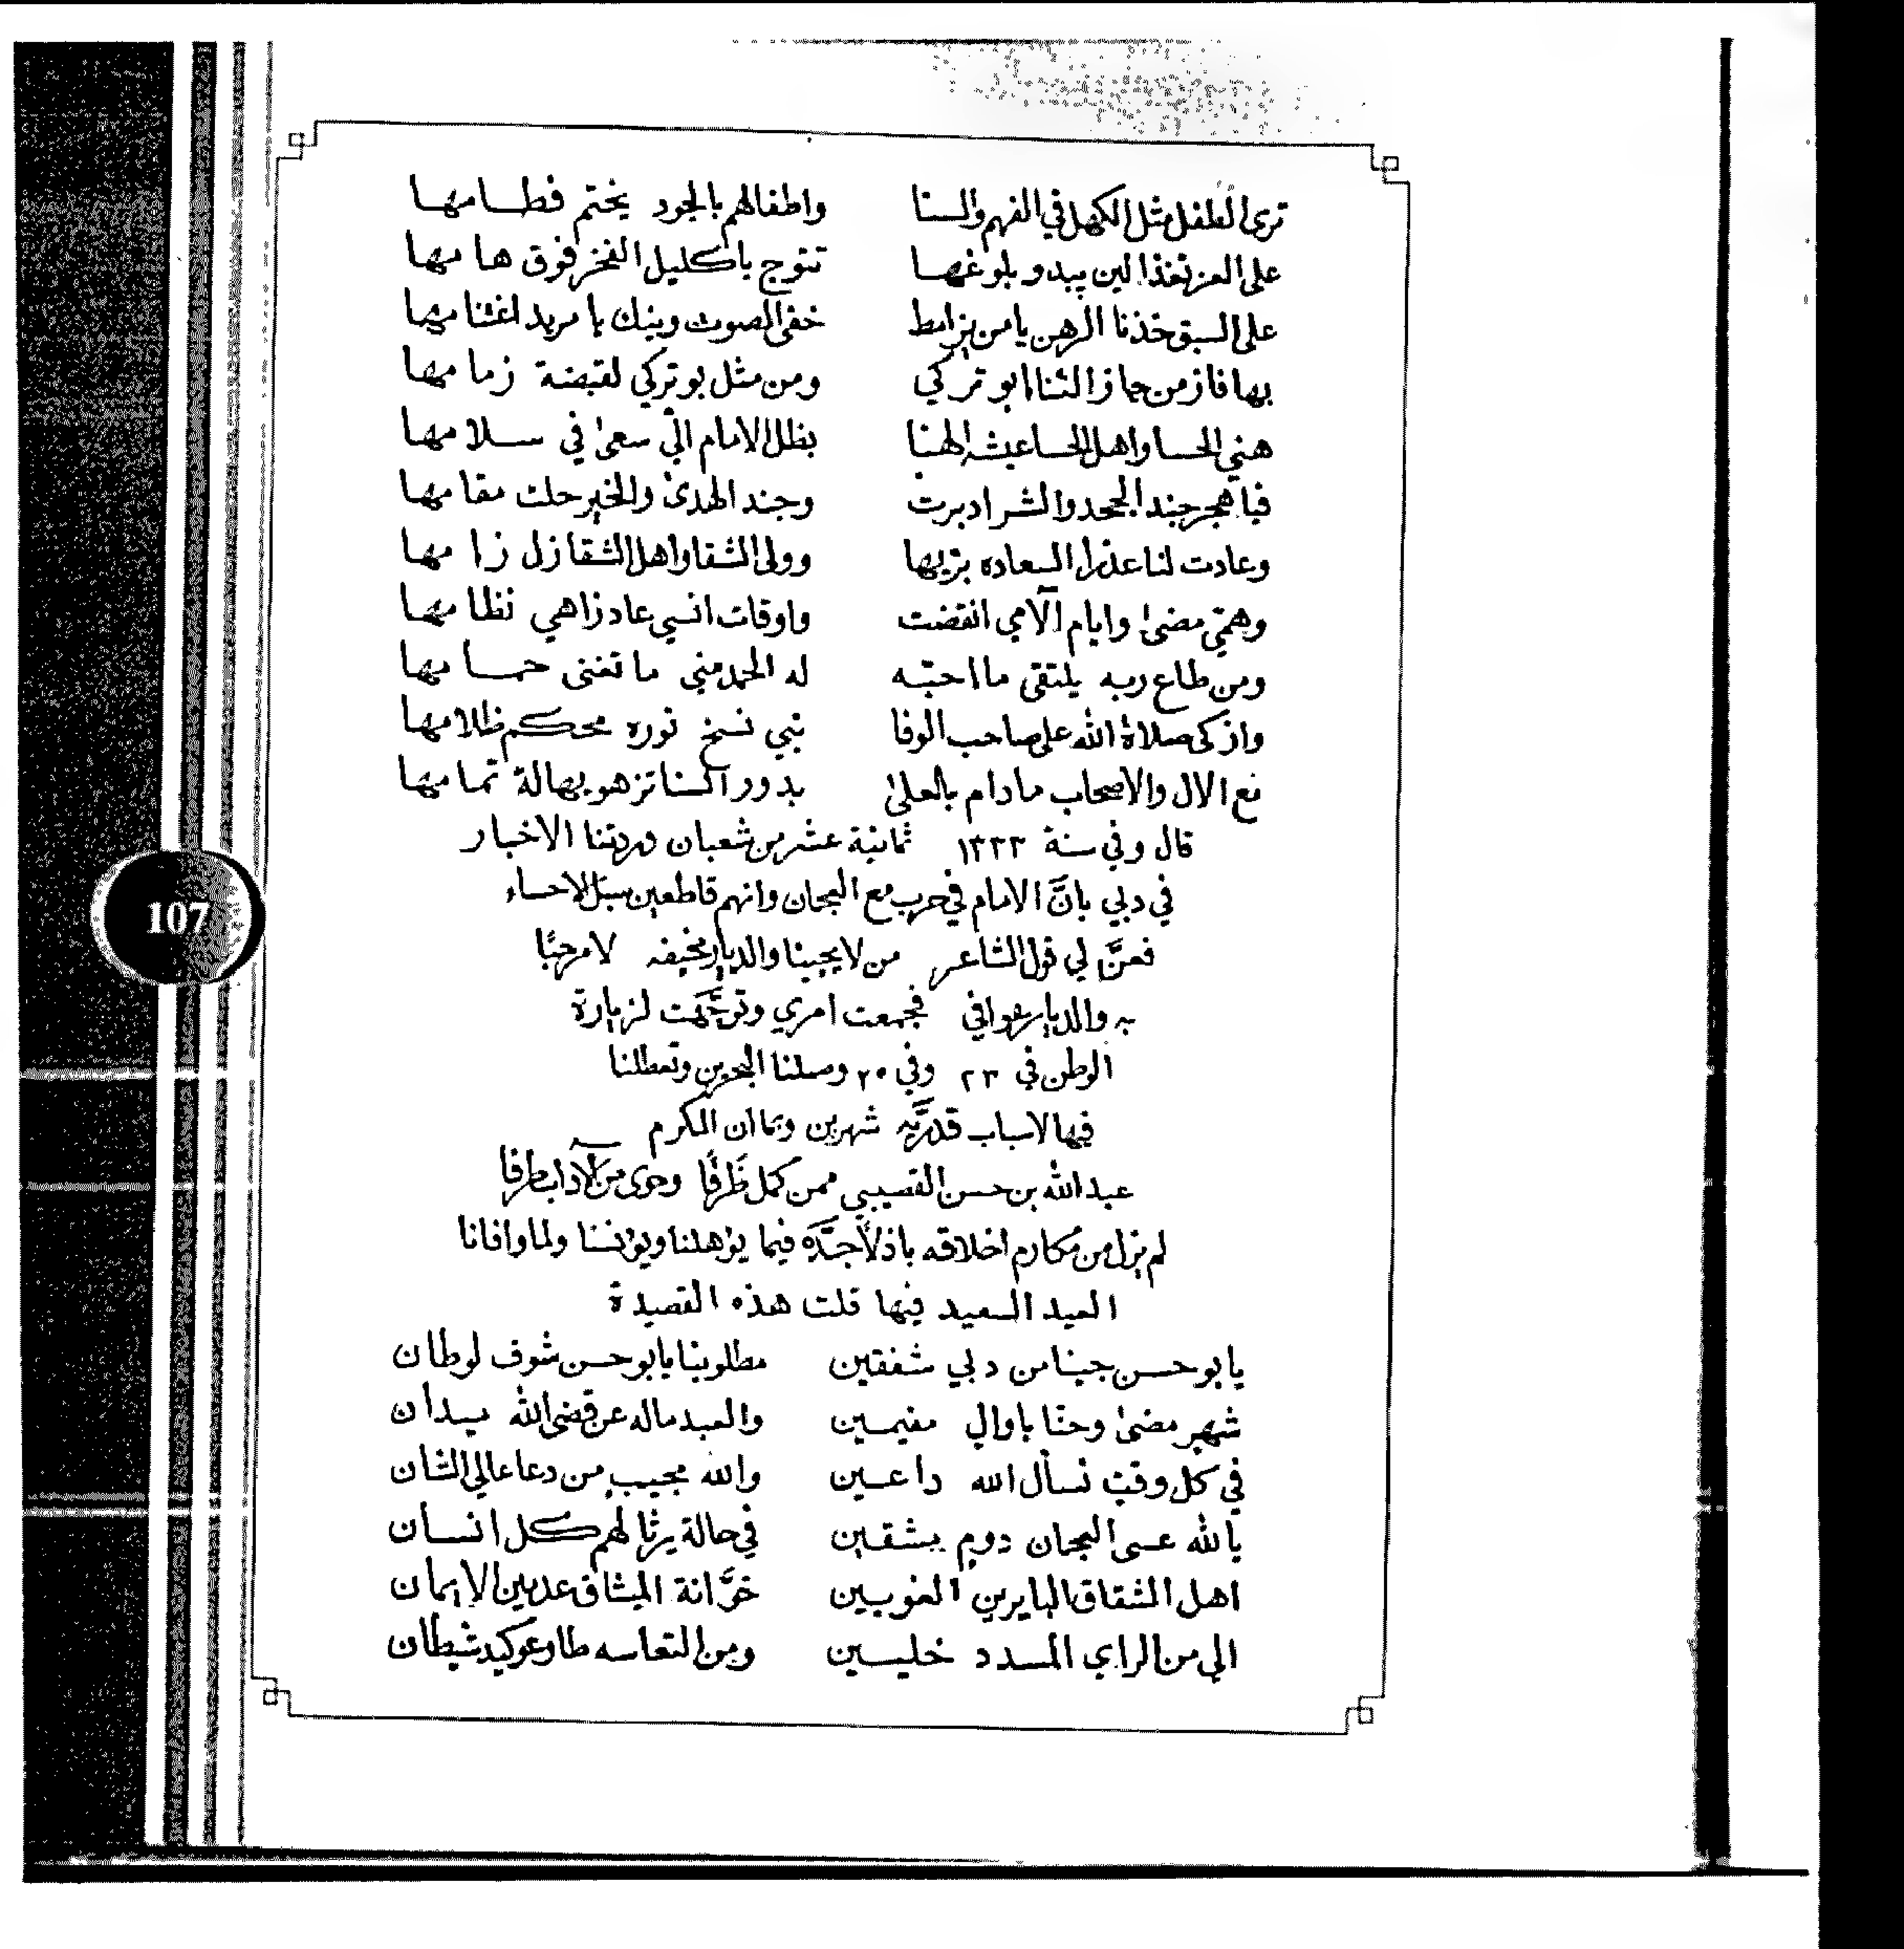 ترى الطفل مثل الكهل في الفهم والسنا واطفالهم بالجود يختم فطامها
على العز تغذا لين يبدو بلوغها تتوج باكليل الفخر فوق هامها
على السبق خذنا الرهن يامن يزامط خفي الصوت وينك يا مريد اغتنامها
بها فاز من حاز الثنا ابو تركي ومن مثل بو تركي لقبضة زمامها
هني الحسا واهل الحسا عيشه الهنا بظل الامام الي سعى في سلامها
فيا هجر جند الجحد والشر ادبرت وجند الهدى والخير حلت مقامها
وعادت لنا عذرا السعاده بزيها وولى الشقا واهل الشقا زل زامها
وهمّي مضى وايام آلامي انقضت واوقات انسي عاد زاهي نظامها
ومن طاع ربه يلتقي ما احبّه له الحمد مني ما تغنى حمامها
واذكى صلاة الله على صاحب الوفا نبي نسخ نوره محكم ظلامها
مع الال والاصحاب مادام بالعلى بدور السنا تزهو بهالة تمامها
قال وفي سنة ١٣٣٣ ثمانية عشر من شعبان وردتنا الاخبار
في دبي بانَّ الامام في حرب مع العجمان وانهم قاطعين سبل الاحساء
فعنَّ لي قول الشاعر من لا يجينا والديار مخيفه لا مرحبًا
به والديار عوافي فجمعت امري وتوجَّهت لزيارة
الوطن في ٢٣ وفي ٢٥ وصلنا البحرين وتعطلنا
فيها لاسباب قدريَّه شهرين وبما ان المكرم
عبدالله بن حسن القصيبي ممن كمل ظَرفًا وحوى من الآداب طرفا
لم يزل من مكارم اخلاقه باذلاً جدَّه فيما يؤهلنا ويؤنسنا ولما وافانا
العيد السعيد فيها قلت هذه القصيدة
يا بو حسن جينا من دبي شفقين مطلوبنا يا بو حسن شوف لوطان
شهر مضى وحنّا باوالٍ مقيمين والعبد ماله عن قضى الله ميدان
في كل وقتٍ نسأل الله داعين والله مجيبٍ من دعا عالي الشان
يالله عسى العجمان دومٍ يشقين في حالة يرثا لهم كل انسان
اهل الشقاق البايرين الغويين خوَّانة الميثاق عديين الايمان
الي من الراي المسدد خليين ومن التعاسه طاوعو كيد شيطان
107